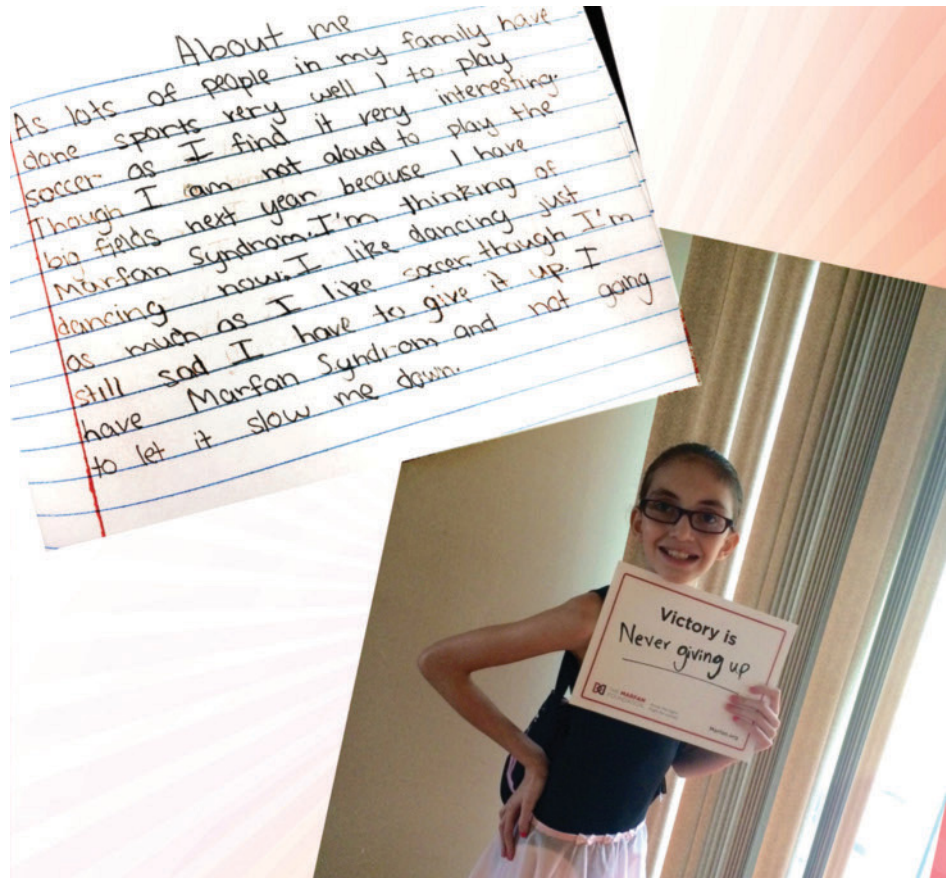 About me
As lots of people in my family have
done sports very well I to play
soccer as I find it very interesting.
Though I am not aloud to play the
big fields next year because I have
Marfan Syndrom. I'm thinking of
dancing now. I like dancing just
as much as I like soccer though I'm
still sad I have to give it up. I
have Marfan Syndrom and not going
to let it slow me down.
Victory is
Never giving up
THE MARFAN
FOUNDATION
Marfan.org